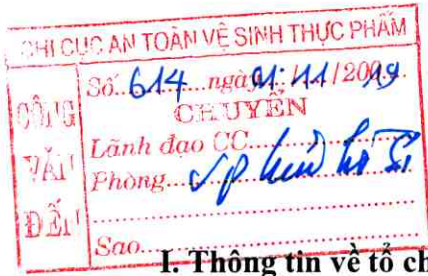 CHI CỤC AN TOÀN VỆ SINH THỰC PHẨM
CÔNG VĂN ĐẾN
Số..614...ngày.01./.11/2019
CHUYỂN
Lãnh đạo CC
Phòng....VP lưu hồ sơ
Sao
I. Thông tin về tổ ch